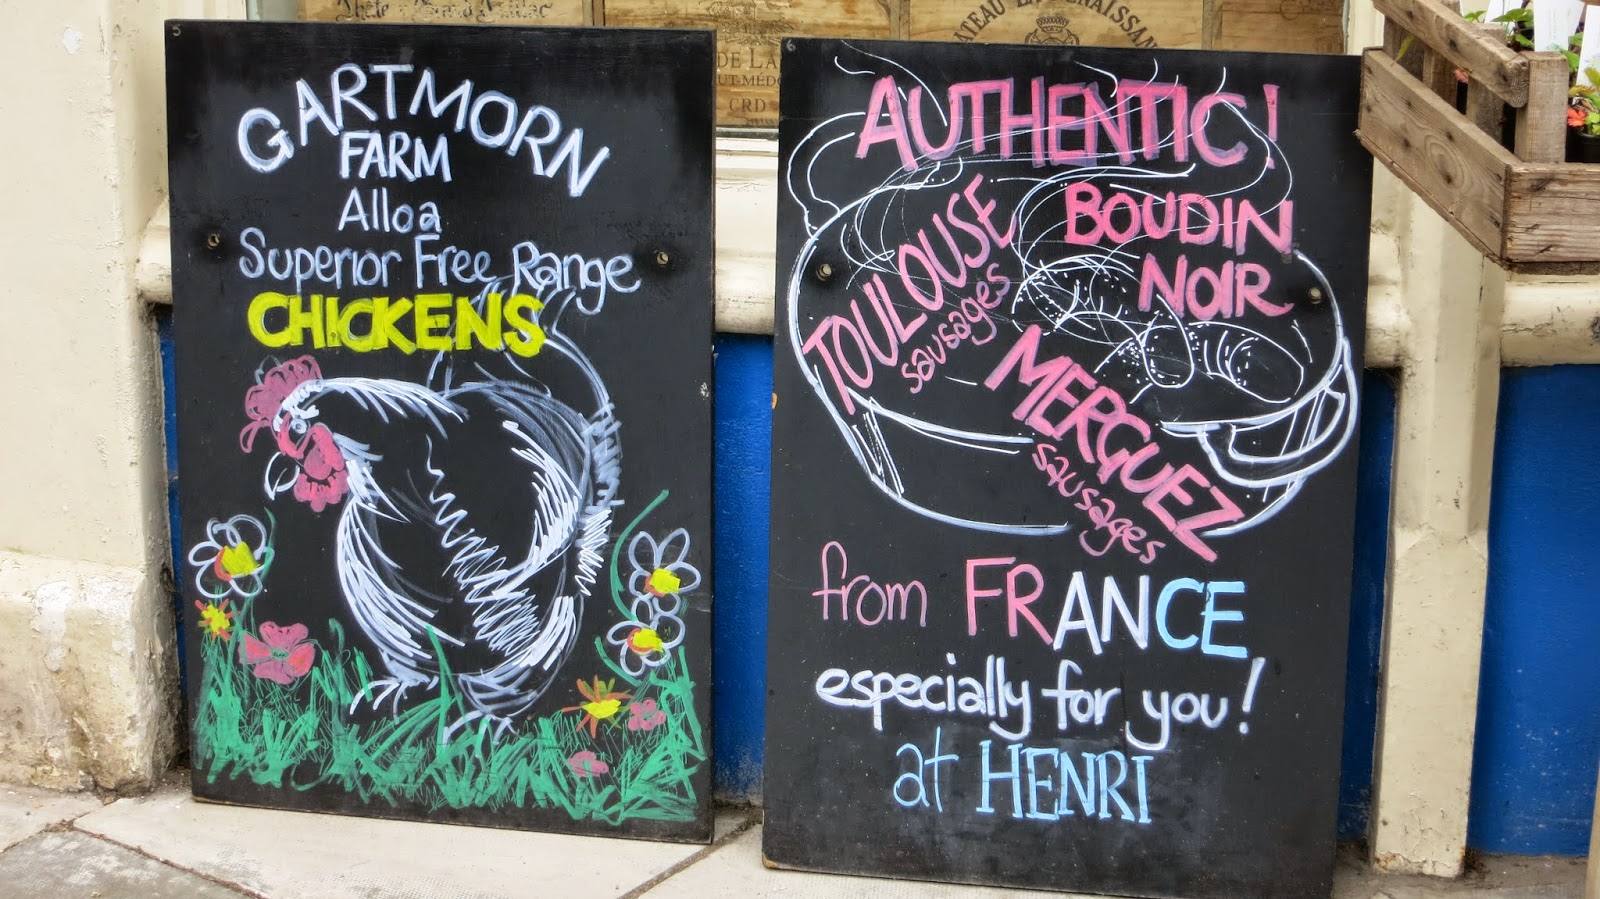 GARTMORN
FARM
Alloa
Superior Free Range
CHICKENS
AUTHENTIC!
TOULOUSE
sausages
BOUDIN
NOIR
MERGUEZ
sausages
from FRANCE
especially for you!
at HENRI
DE LA
UT-MÉDO
CRD